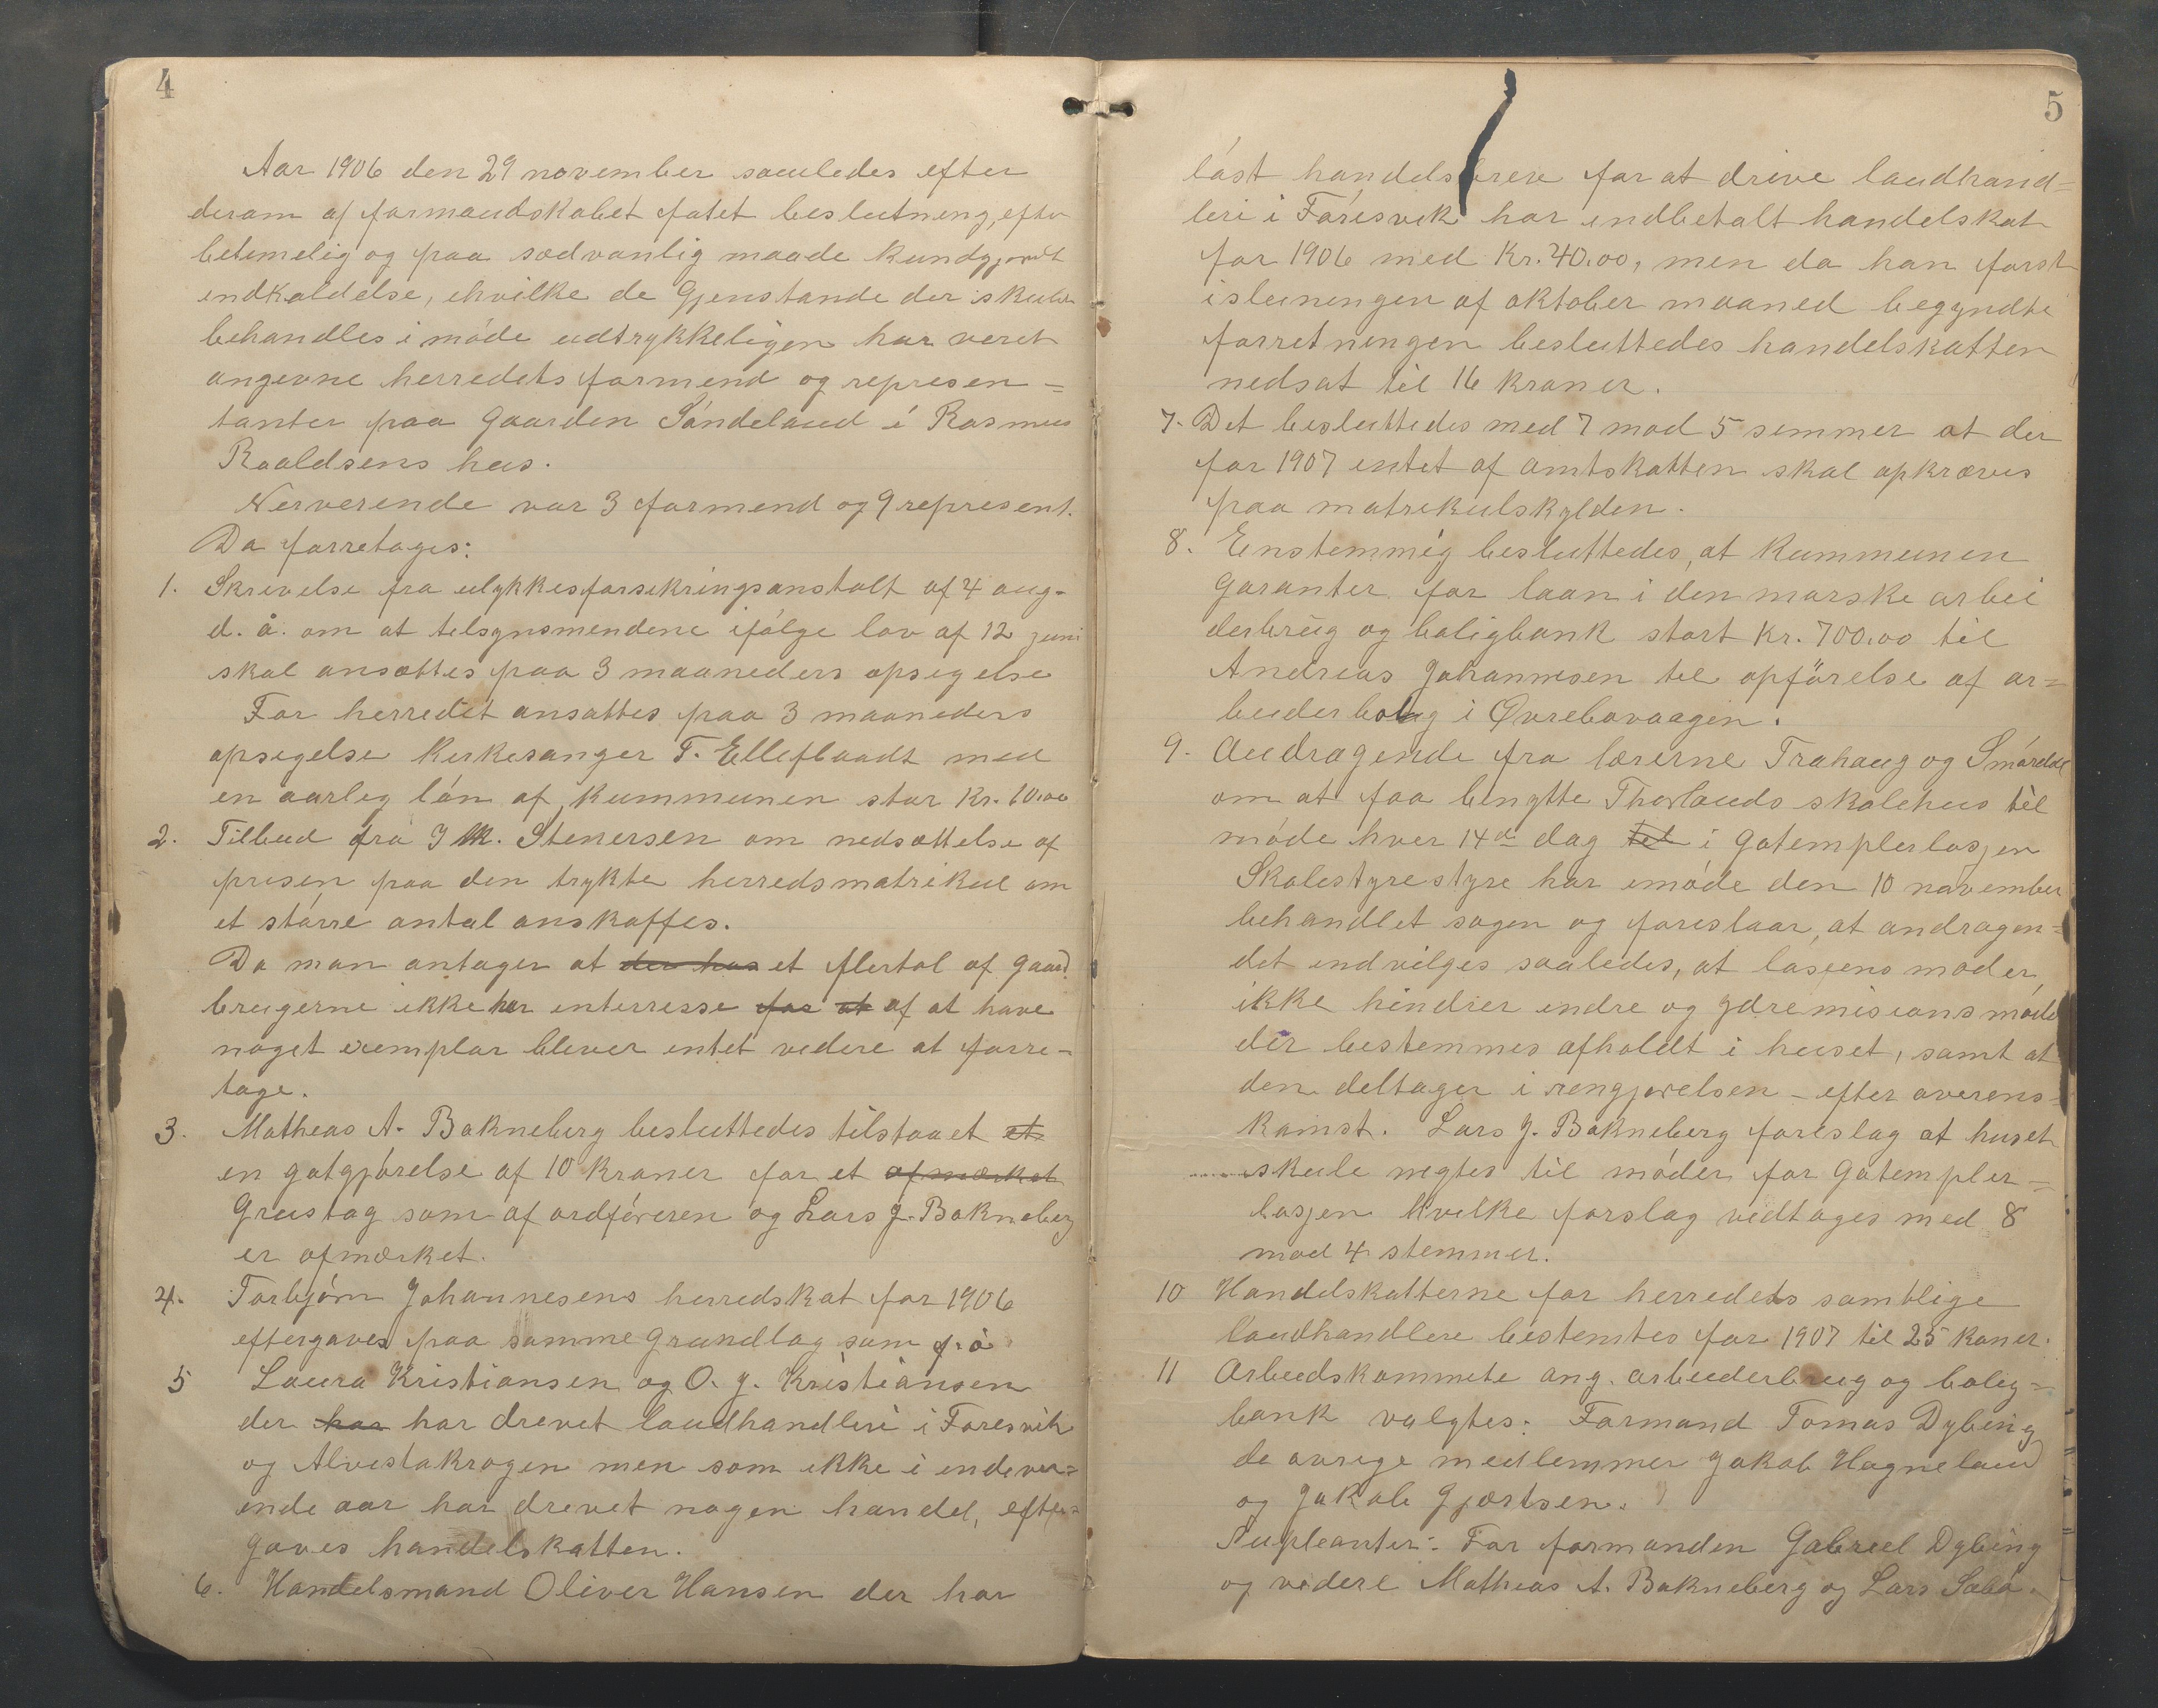 4
Aar 1906 den 29 november samledes efter
derom af formandskabet fatet beslutning, efter
betimelig og paa sedvanlig maade kundgjordt
indkaldelse, ihvilke de Gjenstande der skulde
behandles i móde udtrykkeligen har veret
angevne herredets formend og represen=
tanter paa Gaarden Sóndeland i Rasmus
Roaldsens hus.
Nerverende var 3 formend og 9 represent.
Da forretages:
1. Skrivelse fra ulykkesforsikringsanstalt af 4 aug.
d. å. om at tilsynsmendene ifólge lov af 12 juni
skal ansættes paa 3 maaneders opsigelse
For herredet ansattes paa 3 maaneders
opsigelse Kirkesanger T. Elleflaadt med
en aarlig lón af Kummunen stor Kr. 10.00
2. Tilbud fra J M. Stenersen om nedsættelse af
prisen paa den trykte herredsmatrikul om
et stórre antal anskaffes.
Da man antager at der hos et flertal af gaard
brugerne ikke har interresse for at af at have
noget exemplar bliver intet videre at forre-
tage.
3. Matheas A. Bokneberg besluttedes tilstaaet et
en gotgjórelse af 10 Kroner for et afmærket
Grustag som af ordfóreren og Lars J. Bokneberg
er afmærket.
4. Torbjórn Johannesens herredskat for 1906
eftergaves paa samme grundlag som f. å
5 Laura Kristiansen og O. J. Kristiansen
der har har drevet landhandleri i Foresvik
og Alvestakrogen men som ikke i indever=
ende aar har drevet nogen handel, efter=
gaves handelskatten.
6. Handelsmand Oliver Hansen der har
5
lóst handelsbrev for at drive landhand=
leri i Fóresvik har indbetalt handelskat
for 1906 med Kr. 40.00, men da han forst
islutningen af oktober maaned begyndte
forretningen besluttedes handelskatten
nedsat til 16 kroner.
7. Det besluttedes med 7 mod 5 semmer at der
for 1907 intet af amtskatten skal opkræves
paa matrikulskylden.
8. Einstemmig besluttedes, at Kummunen
Garanter for laan i den norske arbei
derbrug og boligbank stort Kr. 700.00 til
Andreas Johannesen til opförelse af ar=
beiderbolig i Øvrebovaagen.
9. Andragende fra lærerne Trohaug og Smórdal
om at faa benytte Thorlands skolehus til
móde hver 14de dag til i Gotemplerlosjen
Skolestyrestyre har imóde den 10 november
behandlet sagen og foreslaar, at andragen=
det indvilges saaledes, at losjens moder,
ikke hindrer indre og ydremisions móder
der bestemmes afholdt i huset, samt at
den deltager i rengjorelsen - efter overens
komst. Lars J. Bokneberg foreslog at huset
skule negtes til móder for Gotempler=
losjen Hvilke forslag vedtages med 8
mod 4 stemmer.
10 Handelskatterne for herredets samtlige
landhandlere bestemtes for 1907 til 25 Koner.
11 Arbeidskommete ang. arbeiderbrug og bolig=
bank valgtes: Formand Tomas Dybing
de ovrige medlemmer Jakob Hagneland
og Jakob Gjærtsen.
Supleanter: For formanden Gabriel Dybing
og videre Matheas A. Bokneberg og Lars Sæbó.